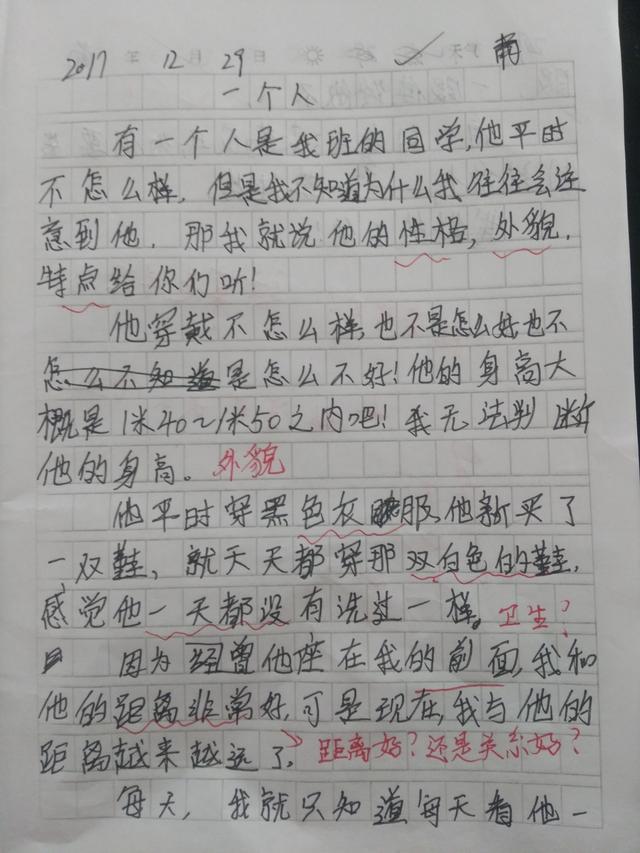 2017 12 29 南
一个人
有一个人是我班的同学,他平时
不怎么样,但是我不知道为什么我往往会注
意到他,那我就说他的性格,外貌,
特点给你们听!
他穿戴不怎么样,也不是怎么好也不
怎么不知道是怎么不好!他的身高大
概是1米40~1米50之内吧!我无法判断
他的身高。外貌
他平时穿黑色衣服,他新买了
一双鞋,就天天都穿那双白色的鞋,
感觉他一天都没有洗过一样。卫生?
因为经曾他座在我的前面,我和
他的距离非常好,可是现在,我与他的
距离越来越远了,距离好?还是关系好?
每天,我就只知道每天看他一